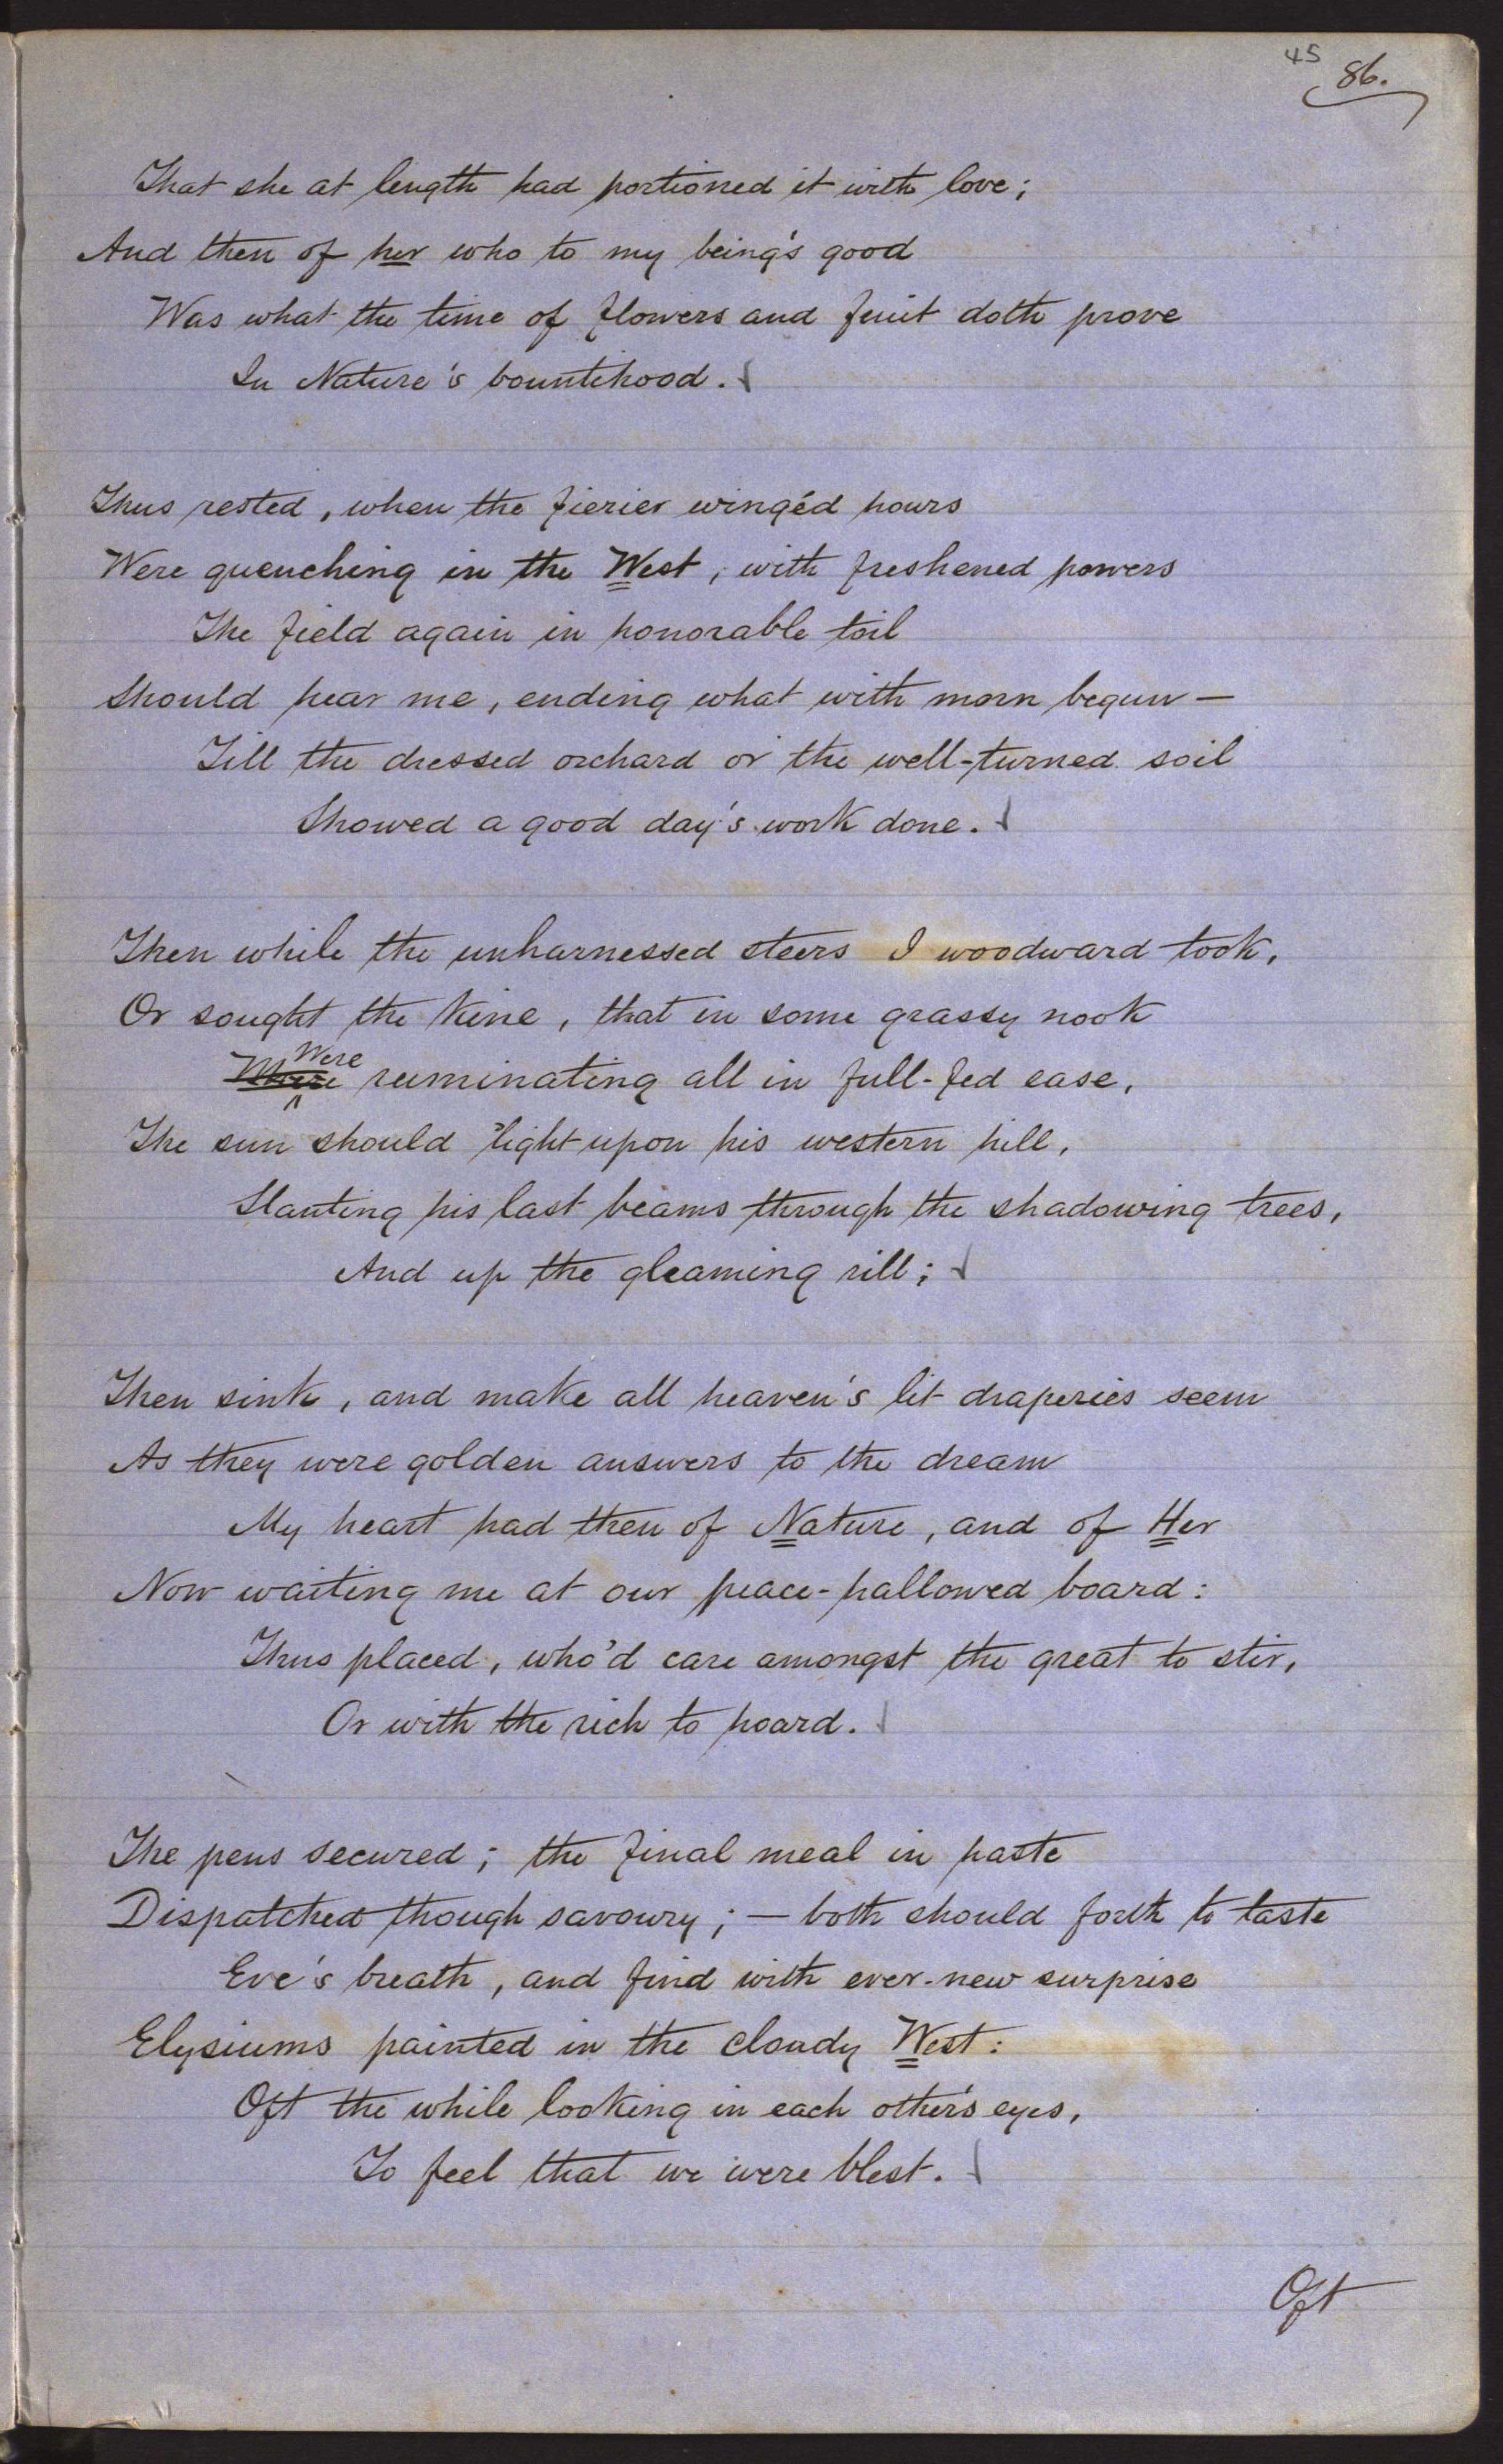 45
86.
That she at length had portioned it with love;
And then of her who to my being's good
Was what the time of flowers and fruit doth prove
In Nature's bountihood.
Thus rested, when the fierier wingéd hours
Were quenching in the West, with freshened powers
The field again in honorable toil
Should hear me, ending what with morn begun —
Till the dressed orchard or the well-turned soil
Showed a good day's work done.
Then while the unharnessed steers I woodward took,
Or sought the kine, that in some grassy nook
Were ruminating all in full-fed ease,
The sun should 'light upon his western hill,
Slanting his last beams through the shadowing trees,
And up the gleaming rill;
Then sink, and make all heaven's lit draperies seem
As they were golden answers to the dream
My heart had then of Nature, and of Her
Now waiting me at our peace-hallowed board:
Thus placed, who'd care amongst the great to stir,
Or with the rich to hoard.
The pens secured; the final meal in haste
Dispatched though savoury; — both should forth to taste
Eve's breath, and find with ever-new surprise
Elysiums painted in the cloudy West:
Oft the while looking in each other's eyes,
To feel that we were blest.
Oft